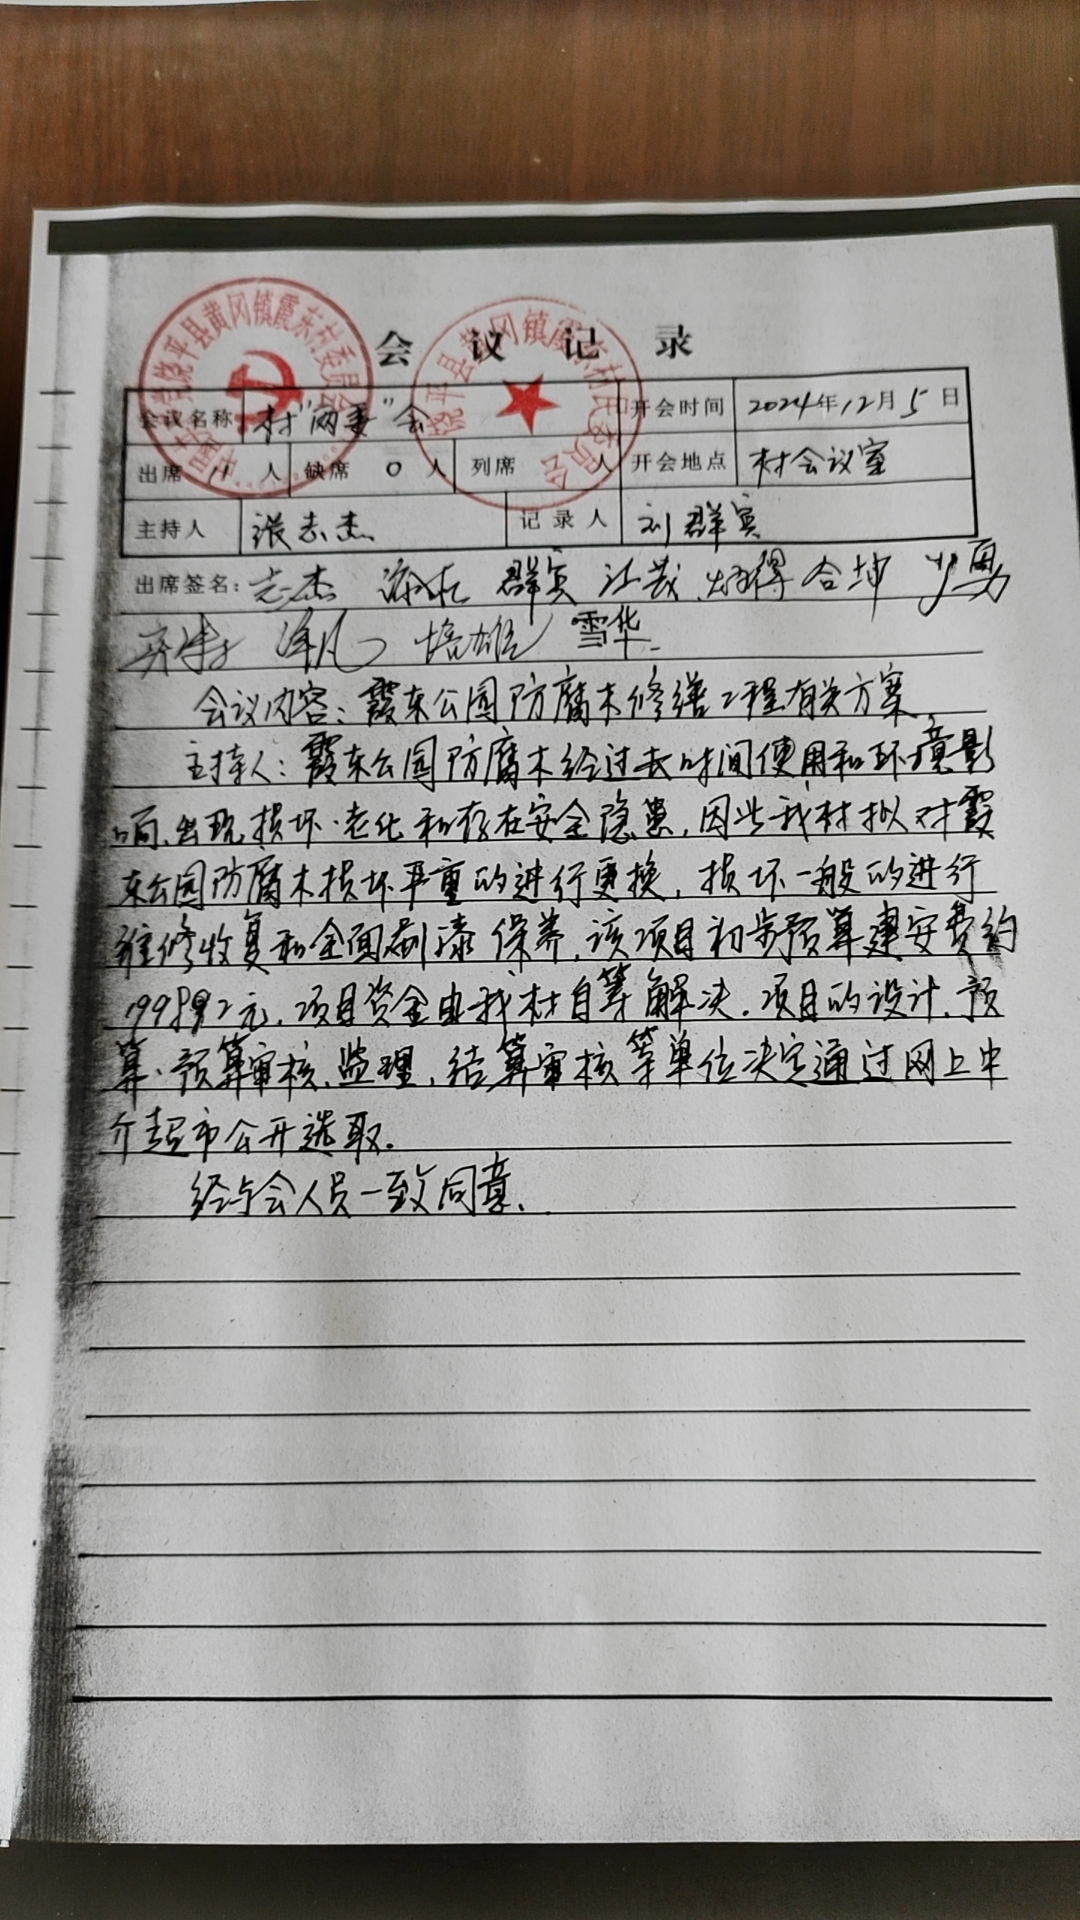 会议记录
中国共产党饶平县黄冈镇霞东村委员会
饶平县黄冈镇霞东村民委员会
会议名称 村“两委”会 开会时间 2024年12月5日
出席 11 人 缺席 0 人 列席 人 开会地点 村会议室
主持人 张志杰 记录人 刘群宾
出席签名: 志杰 群宾 合坤 少勇
培雄 雪华
会议内容:霞东公园防腐木修缮工程有关方案。
主持人:霞东公园防腐木经过长时间使用和环境影
响,出现损坏、老化和存在安全隐患,因此我村拟对霞
东公园防腐木损坏严重的进行更换,损坏一般的进行
维修收复和全面刷漆保养,该项目初步预算建安费约
元,项目资金由我村自筹解决。项目的设计、预
算、预算审核、监理,结算审核等单位决定通过网上中
介超市公开选取.
经与会人员一致同意.